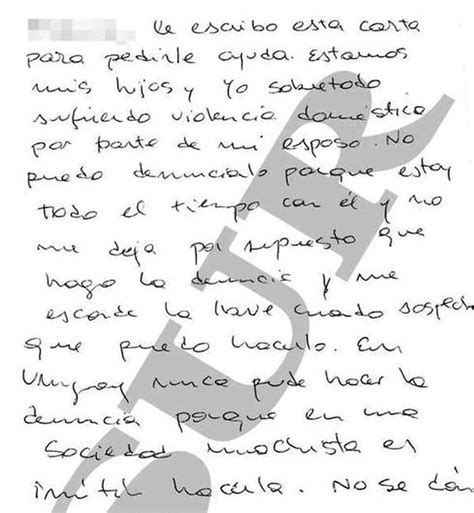 Le escribo esta carta
para pedirle ayuda. Estamos
mis hijos y yo sobretodo
sufriendo violencia doméstica
por parte de mi esposo. No
puedo denunciarlo porque estoy
todo el tiempo con él y no
me deja por supuesto que
haga la denuncia y me
esconde la llave cuando sospecha
que puedo hacerlo. En
Uruguay nunca pude hacer la
denuncia porque en una
sociedad machista es
inútil hacerla. No se cóm
SUR